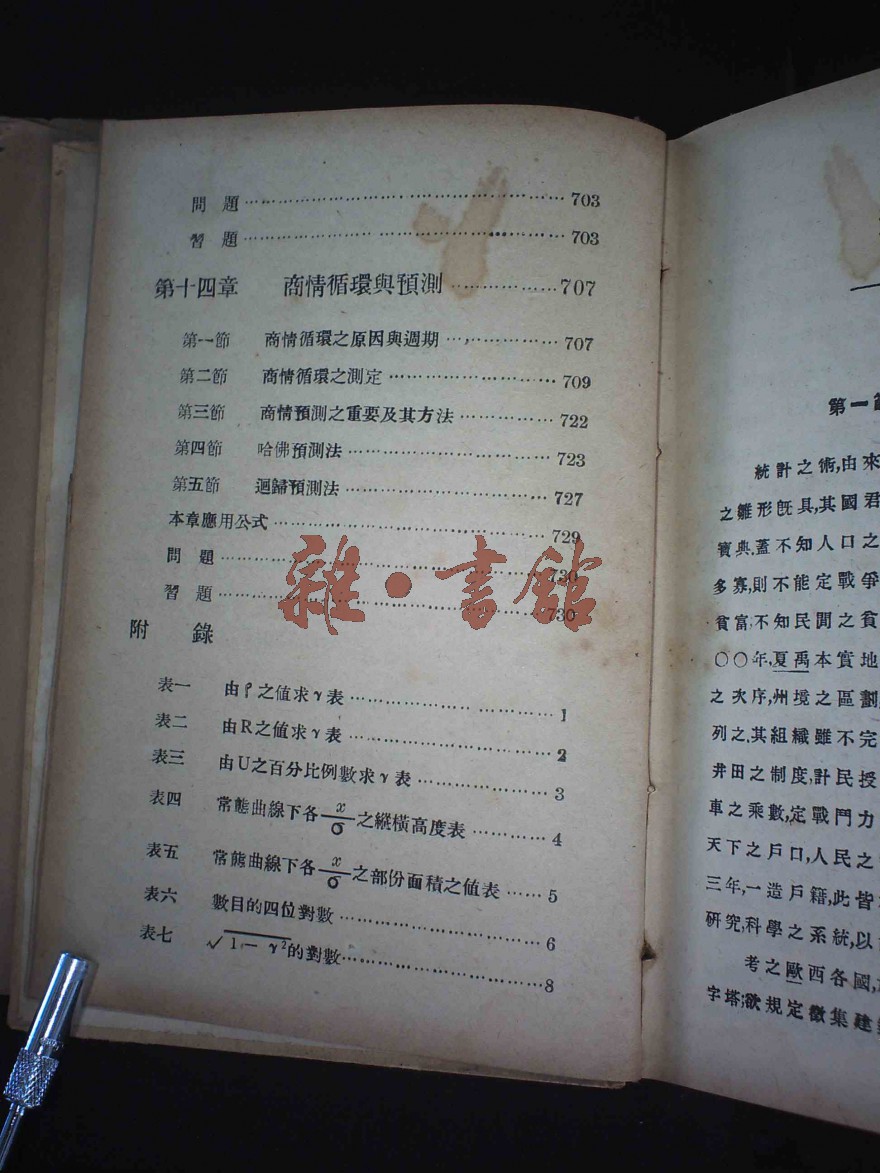 問 題 703
習 題 703
第十四章 商情循環與預測 707
第一節 商情循環之原因與週期 707
第二節 商情循環之測定 709
第三節 商情預測之重要及其方法 722
第四節 哈佛預測法 723
第五節 迴歸預測法 727
本章應用公式 729
問 題 730
習 題 730
附 錄
表一 由ρ之値求γ表 1
表二 由R之値求γ表 2
表三 由U之百分比例數求γ表 3
表四 常態曲線下各x/σ之縱橫高度表 4
表五 常態曲線下各x/σ之部份面積之値表 5
表六 數目的四位對數 6
表七 √1-γ²的對數 8
雜·書館
第一
統計之術,由來
之雛形旣具,其國君
寶典,蓋不知人口之
多寡,則不能定戰爭
貧富;不知民間之貧
〇〇年,夏禹本實地
之次序,州境之區劃
列之,其組織雖不完
井田之制度,計民授
車之乘數,定戰鬥力
天下之戶口,人民之
三年,一造戶籍,此皆
研究,科學之系統,以
考之歐西各國,
字塔;欲規定徵集建